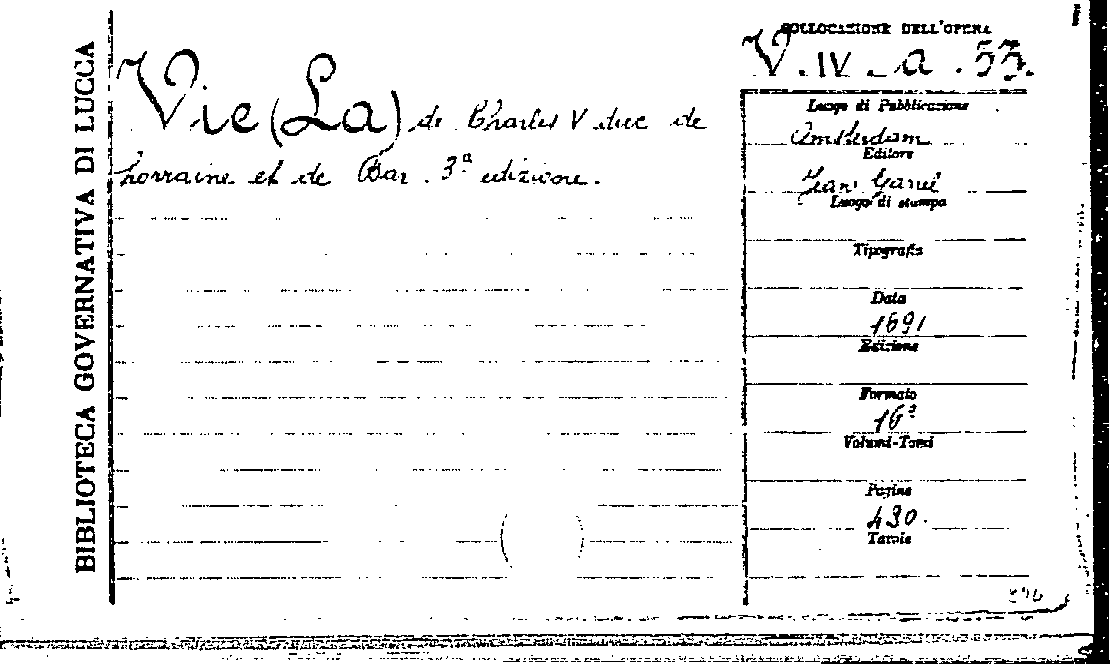 BIBLIOTECA GOVERNATIVA DI LUCCA
COLLOCAZIONE DELL'OPERA
V. IV. a. 53.
Vie (La) de Charles V duc de
Lorraine et de Bar. 3ª edizione.
Luogo di Pubblicazione
Amsterdam
Editore
Jean Garel
Luogo di stampa
Tipografia
Data
1691
Edizione
Formato
16º
Volumi-Tomi
Pagine
430.
Tavole